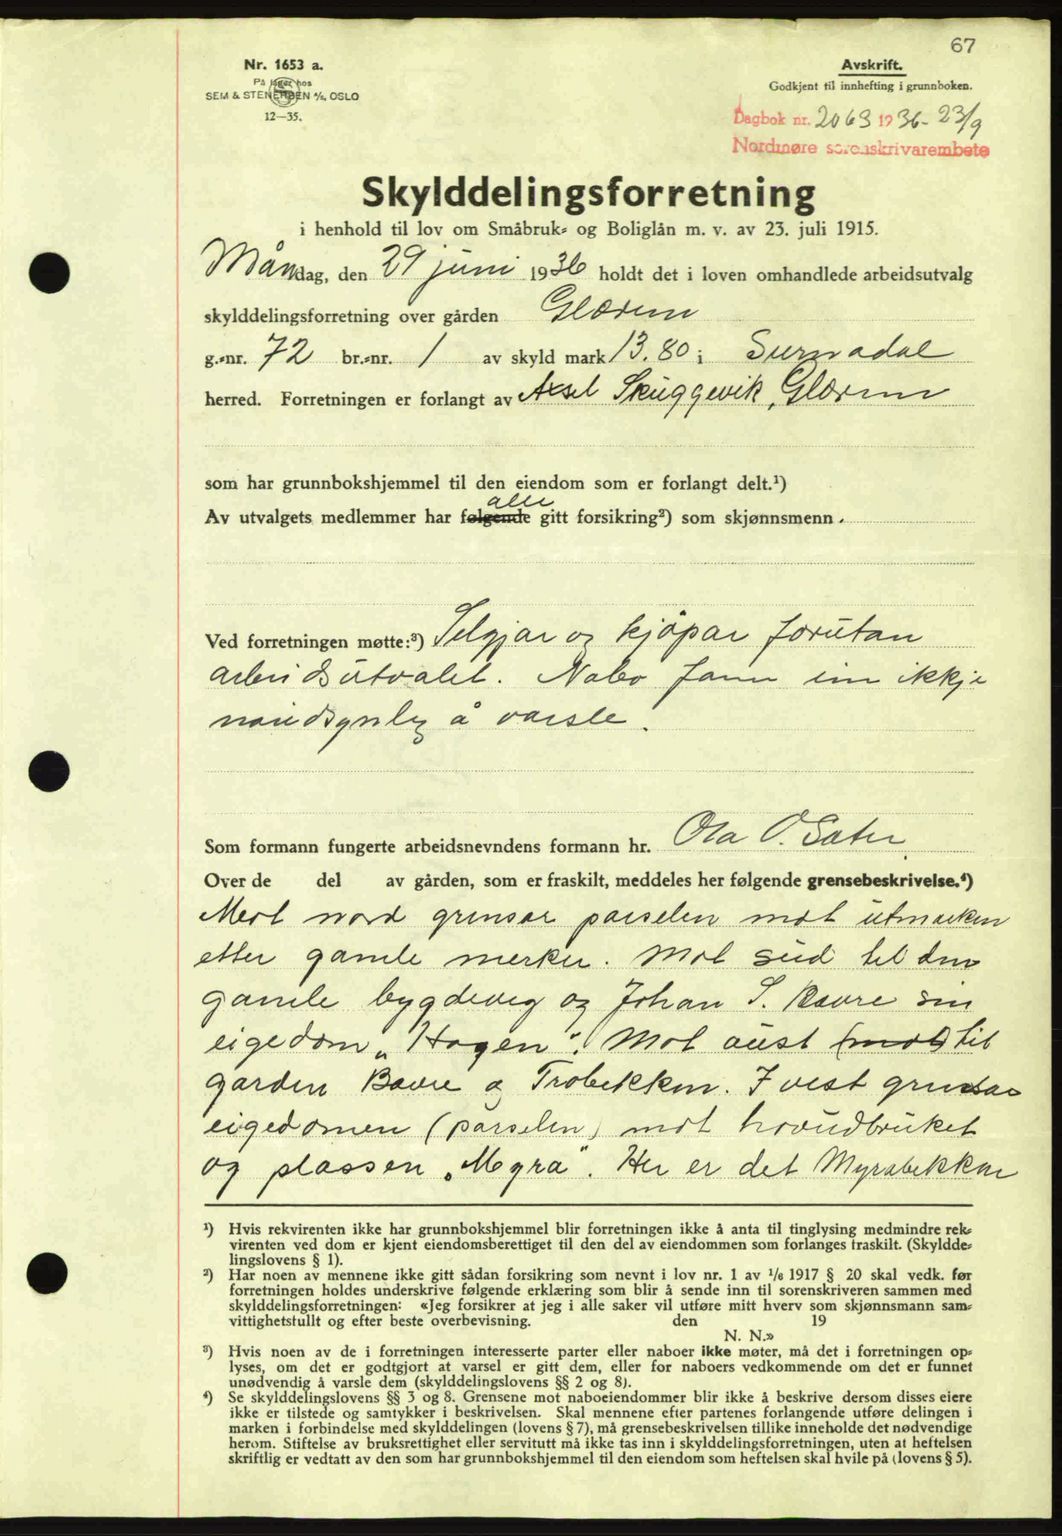 67
Nr. 1653 a.
På lager hos
SEM & STENERSEN A/S, OSLO
12—35.
Avskrift.
Godkjent til innhefting i grunnboken.
Dagbok nr. 2063 1936 - 23/9
Nordmøre sorenskrivarembete
Skylddelingsforretning
i henhold til lov om Småbruk- og Boliglån m. v. av 23. juli 1915.
Måndag, den 29 juni 1936 holdt det i loven omhandlede arbeidsutvalg
skylddelingsforretning over gården Glærem
g.-nr. 72 br.-nr. 1 av skyld mark 13.80 i Surnadal
herred. Forretningen er forlangt av Axsel Skuggevik, Glærem
som har grunnbokshjemmel til den eiendom som er forlangt delt.¹)
alle
Av utvalgets medlemmer har følgende gitt forsikring²) som skjønnsmenn.
Ved forretningen møtte:³) Selgjar og kjöpar forutan
arbeidsutvalet. Nabo fann ein ikkje
naudsynleg å varsle.
Som formann fungerte arbeidsnevndens formann hr. Ola O. Sæter
Over de del av gården, som er fraskilt, meddeles her følgende grensebeskrivelse.⁴)
Mot nord grensar parselen mot utmarken
etter gamle merker. Mot sud til den
gamle bygdeveg og Johan S. Bævre sin
eigedom „Hagen". Mot aust (mot) til
garden Bævre og Trøbekken. I vest grensar
eigedomen (parselen) mot hovudbruket
og plassen „Myra". Her er det Myrabekken
¹) Hvis rekvirenten ikke har grunnbokshjemmel blir forretningen ikke å anta til tinglysing medmindre rek-
virenten ved dom er kjent eiendomsberettiget til den del av eiendommen som forlanges fraskilt. (Skyldde-
lingslovens § 1).
²) Har noen av mennene ikke gitt sådan forsikring som nevnt i lov nr. 1 av 1/6 1917 § 20 skal vedk. før
forretningen holdes underskrive følgende erklæring som blir å sende inn til sorenskriveren sammen med
skylddelingsforretningen: «Jeg forsikrer at jeg i alle saker vil utføre mitt hverv som skjønnsmann sam-
vittighetsfullt og efter beste overbevisning. den 19
N. N.»
³) Hvis noen av de i forretningen interesserte parter eller naboer ikke møter, må det i forretningen op-
lyses, om det er godtgjort at varsel er gitt dem, eller for naboers vedkommende om det er funnet
unødvendig å varsle dem (skylddelingslovens §§ 2 og 8).
⁴) Se skylddelingslovens §§ 3 og 8. Grensene mot naboeiendommer blir ikke å beskrive dersom disses eiere
ikke er tilstede og samtykker i beskrivelsen. Skal mennene efter partenes forlangende utføre delingen i
marken i forbindelse med skylddelingen (lovens § 7), må grensebeskrivelsen tillike inneholde det nødvendige
herom. Stiftelse av bruksrettighet eller servitutt må ikke tas inn i skylddelingsforretningen, uten at heftelsen
skriftlig er vedtatt av den som har grunnbokshjemmel til den eiendom som heftelsen skal hvile på (lovens § 5).